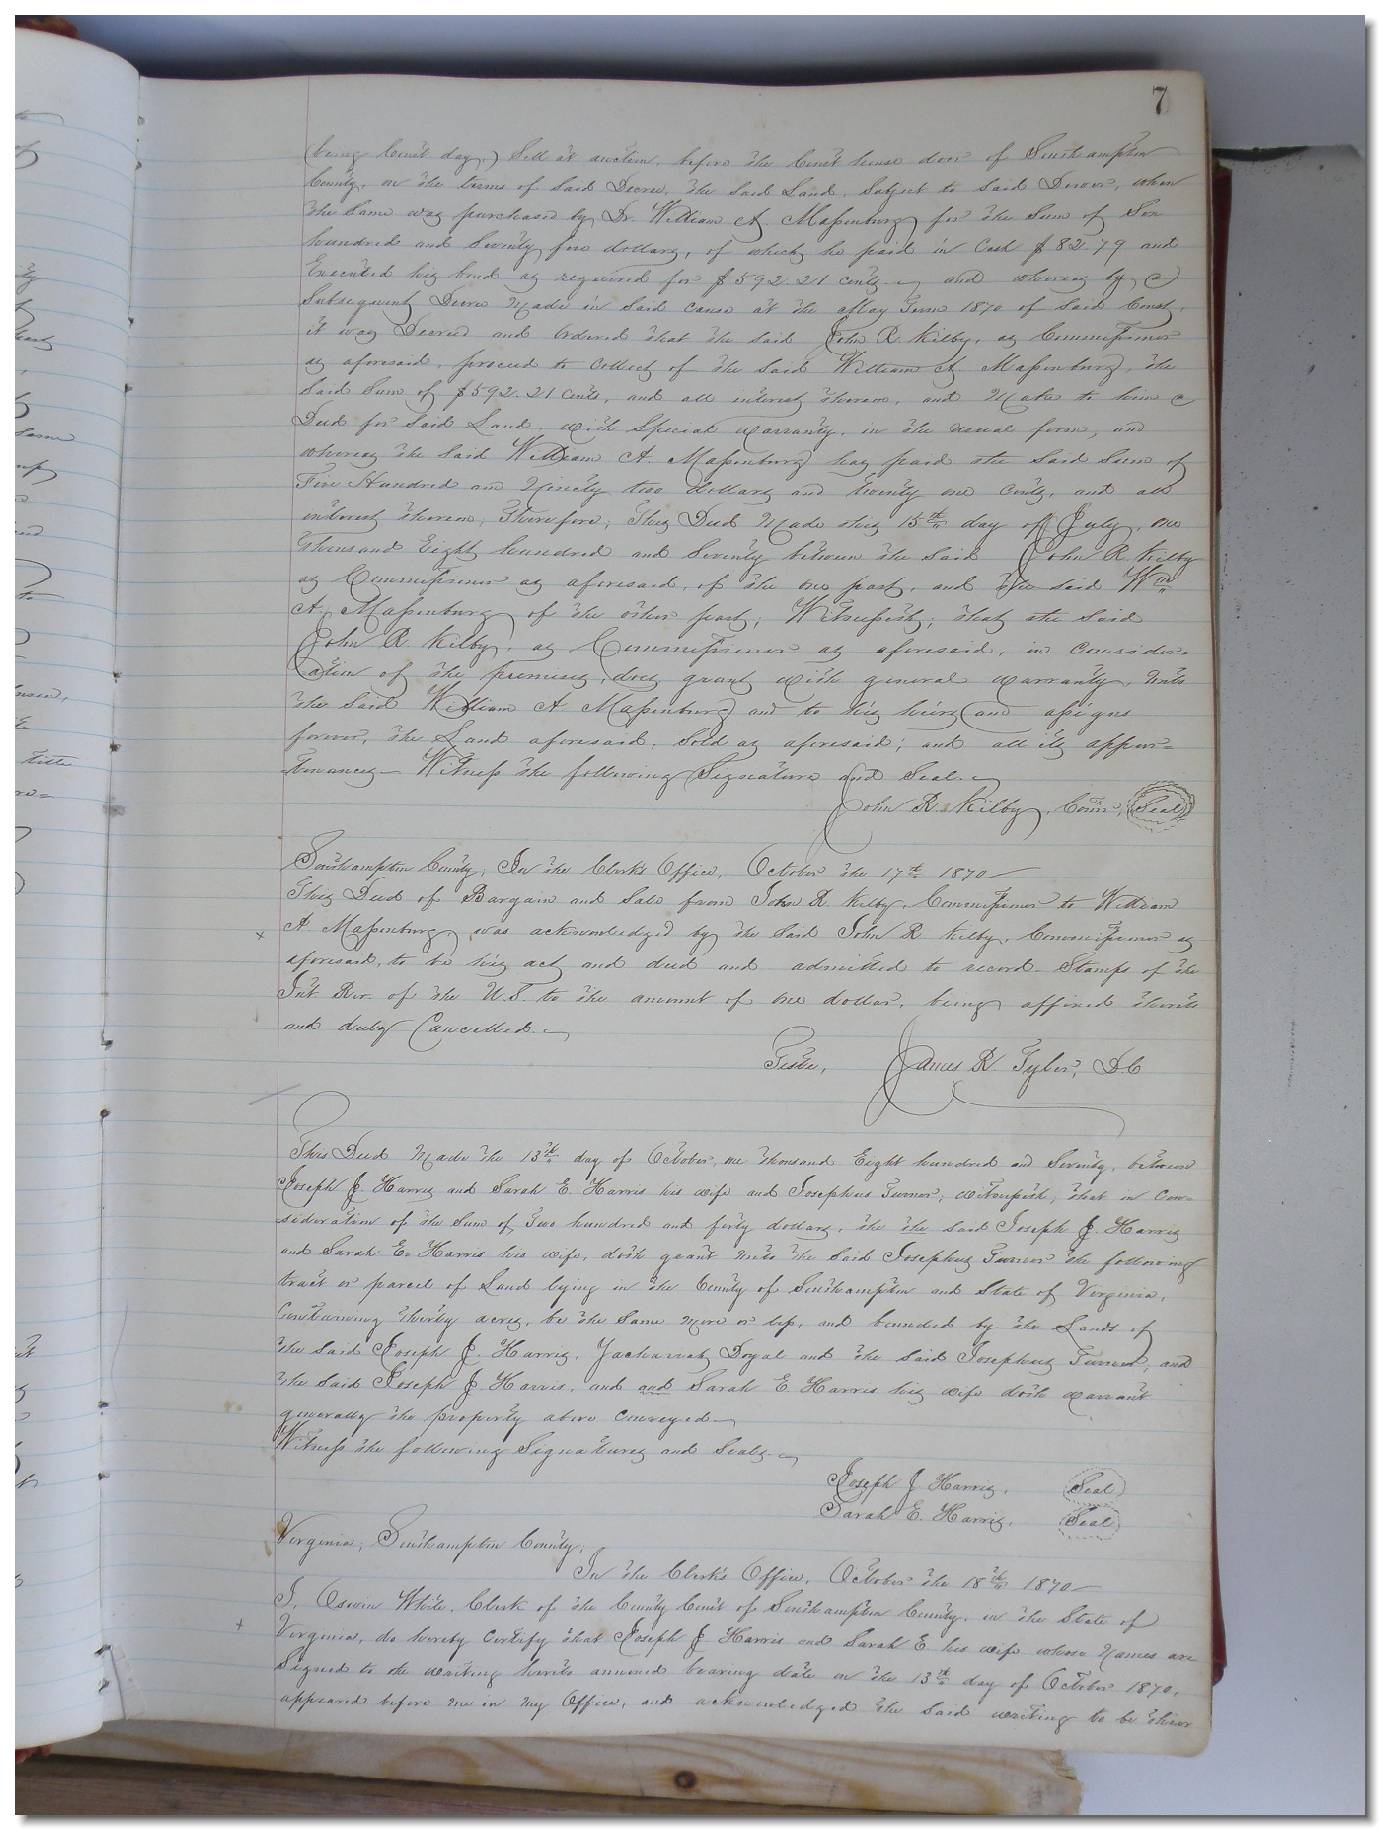 7
(being Court day,) Sell at auction, before the Court house door of Southampton
County, on the terms of said Decree, the said Land, Subject to said Dower, when
the same was purchased by Dr. William A. Massenburg for the Sum of Six
hundred and Seventy five dollars, of which he paid in Cash $82.79 and
Executed his bond as required for $592.21 cents and whereas by a
Subsequent Decree made in Said cause at the May Term 1870 of said Court,
it was Decreed and Ordered that the said John R. Kilby, as Commissioner
as aforesaid, proceed to collect of the said William A. Massenburg, the
said Sum of $592.21 Cents, and all interest thereon, and Make to him a
Deed for said Land, with Special warranty, in the usual form, and
whereas the said William A. Massenburg has paid the said Sum of
Five Hundred and Ninety two dollars and twenty one cents, and all
interest thereon, Therefore, This Deed Made this 15th day of July, one
thousand Eight hundred and Seventy between the said John R. Kilby
as Commissioner as aforesaid, of the one part, and the said Wm
A. Massenburg of the other part; Witnesseth; that the said
John R. Kilby, as Commissioner as aforesaid, in consider-
ation of the premises, does grant with general warranty, unto
the said William A Massenburg and to his heirs and assigns
forever, the Land aforesaid, Sold as aforesaid; and all its appur=
tenances Witness the following Signature and Seal.
John R. Kilby, Comr, (Seal)
Southampton County, In the Clerk's Office, October the 17th 1870
This Deed of Bargain and Sale from John R. Kilby, Commissioner to William
A. Massenburg was acknowledged by the Said John R Kilby, Commissioner as
aforesaid, to be his act and deed and admitted to record. Stamps of the
Int. Rev. of the U.S. to the amount of one dollar, being affixed thereto
and duly Cancelled.
Teste, James R. Tyler, D.C
This Deed Made the 13th day of October, one thousand Eight hundred and Seventy, between
Joseph J. Harris and Sarah E. Harris his wife and Josephus Turner, witnesseth, that in Con=
sideration of the Sum of Two hundred and forty dollars, the the said Joseph J. Harris
and Sarah E. Harris his wife, doth grant unto the Said Josephus Turner the following
tract or parcel of Land lying in the County of Southampton and State of Virginia,
Containing thirty acres, be the same more or less, and bounded by the Lands of
the said Joseph J. Harris, Zachariah Doyal and the said Josephus Turner, and
the said Joseph J Harris, and and Sarah E. Harris his wife doth warrant
generally the property above conveyed
Witness the following Signatures and Seals.
Joseph J Harris. (Seal)
Sarah E. Harris. (Seal)
Virginia, Southampton County,
In the Clerk's Office, October the 18th 1870
I, Oswin White, Clerk of the County Court of Southampton County, in the State of
Virginia, do hereby certify that Joseph J Harris and Sarah E his wife whose Names are
Signed to the writing hereto annexed bearing date on the 13th day of October 1870,
appeared before me in my Office, and acknowledged the said writing to be their